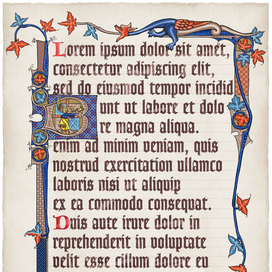 Lorem ipsum dolor sit amet,
consectetur adipiscing elit,
sed do eiusmod tempor incidid
unt ut labore et dolo
re magna aliqua.
enim ad minim veniam, quis
nostrud exercitation ullamco
laboris nisi ut aliquip
ex ea commodo consequat.
Duis aute irure dolor in
reprehenderit in voluptate
velit esse cillum dolore eu